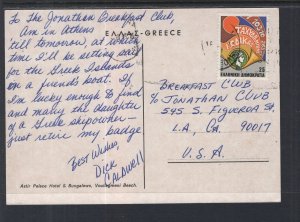 To the Jonathan Breakfast Club,
Am in Athens
'till tomorrow, at which
time I'll be setting sail
for the Greek Islands
on a friends boat. If
I'm lucky enough to find
and marry the daughter
of a Greek shipowner—
just retire my badge
Best Wishes,
Dick
Caldwell
ΕΛΛΑΣ-GREECE
BREAKFAST CLUB
c/o JONATHAN CLUB
545 S. FIGUEROA ST.
L.A., CA. 90017
U.S.A.
Astir Palace Hotel & Bungalows, Vouliagmeni Beach.